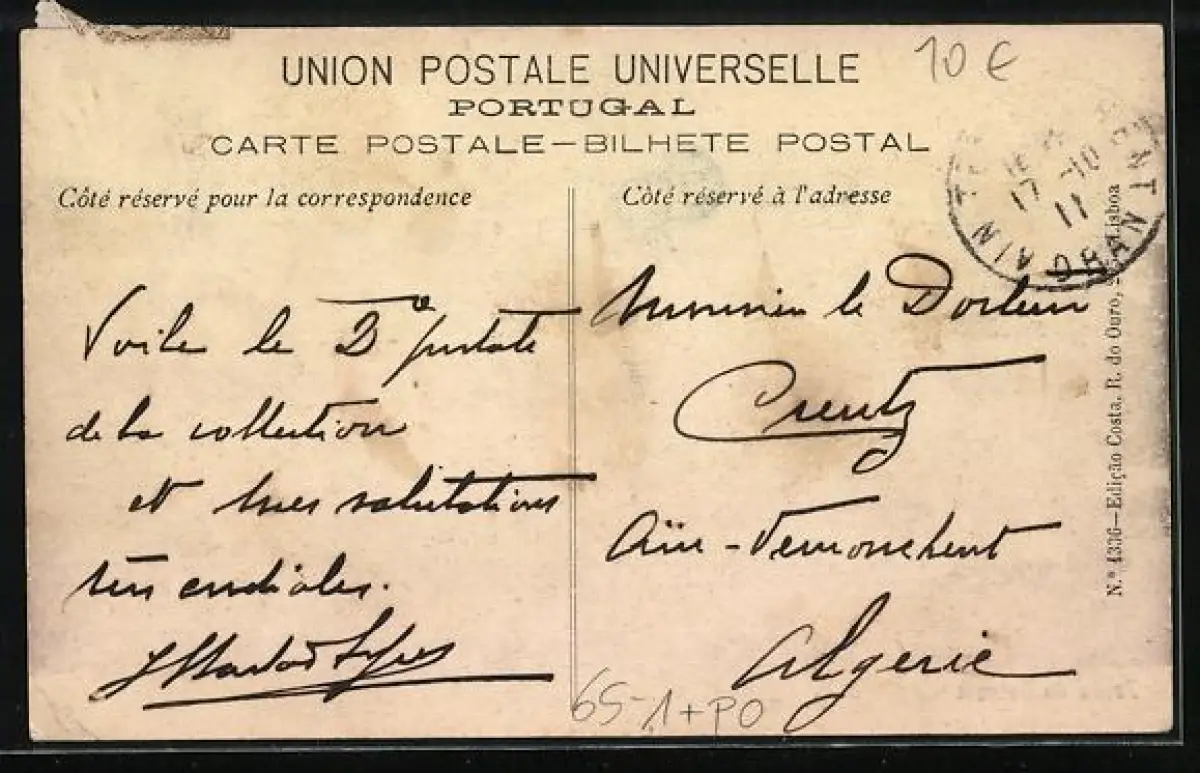 UNION POSTALE UNIVERSELLE
10 €
PORTUGAL
CARTE POSTALE—BILHETE POSTAL
Côté réservé pour la correspondence
Voila le
de la collection
et mes salutations
très cordiales.
Côté réservé à l'adresse
Monsieur le Docteur
Creutz
Aïn-Temouchent
Algerie
AIN ORAN
17 -10
11
N.º 1336—Edição Costa, R. do Ouro, Lisboa
65-1+PO